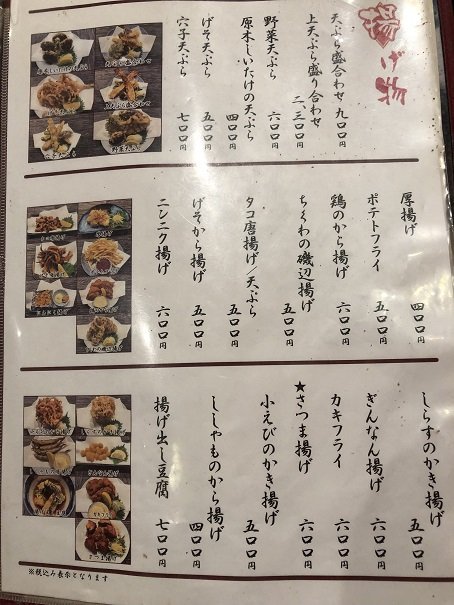 揚げ物
天ぷら盛合わせ 九〇〇円
上天ぷら盛り合わせ 二、三〇〇円
野菜天ぷら 七〇〇円
原木しいたけの天ぷら 四〇〇円
げそ天ぷら 五〇〇円
穴子天ぷら 七〇〇円
野菜天ぷら
厚揚げ 四〇〇円
ポテトフライ 五〇〇円
鶏のから揚げ 六〇〇円
ちくわの磯辺揚げ 五〇〇円
タコ唐揚げ/天ぷら 五〇〇円
げそから揚げ 五〇〇円
ニンニク揚げ 六〇〇円
しらすのかき揚げ 五〇〇円
ぎんなん揚げ 六〇〇円
カキフライ 六〇〇円
★さつま揚げ 六〇〇円
小えびのかき揚げ 五〇〇円
ししゃものから揚げ 四〇〇円
揚げ出し豆腐 七〇〇円
さつま揚げ
※税込み表示となります